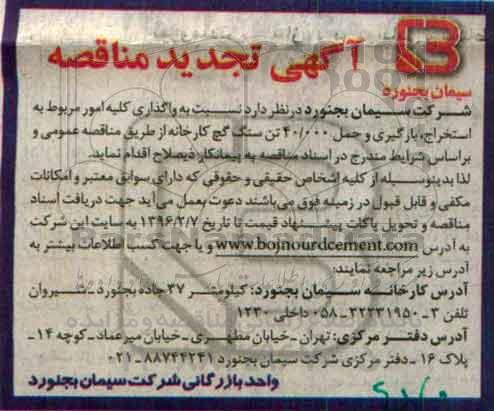 آگهی تجدید مناقصه
سیمان بجنورد
شرکت سیمان بجنورد در نظر دارد نسبت به واگذاری کلیه امور مربوط به
استخراج، بارگیری و حمل ۴۰/۰۰۰ تن سنگ گچ کارخانه از طریق مناقصه عمومی و
براساس شرایط مندرج در اسناد مناقصه به پیمانکار ذیصلاح اقدام نماید.
لذا بدینوسیله از کلیه اشخاص حقیقی و حقوقی که دارای سوابق معتبر و امکانات
مکفی و قابل قبول در زمینه فوق می‌باشند دعوت بعمل می‌آید جهت دریافت اسناد
مناقصه و تحویل پاکات پیشنهاد قیمت تا تاریخ ۱۳۹۶/۲/۷ به سایت این شرکت
به آدرس www.bojnourdcement.com و یا جهت کسب اطلاعات بیشتر به
آدرس زیر مراجعه نمایند:
آدرس کارخانه سیمان بجنورد: کیلومتر ۳۷ جاده بجنورد ـ شیروان
تلفن ۳ ـ ۳۲۲۳۱۹۵۰ ـ ۰۵۸ داخلی ۱۲۳۰
آدرس دفتر مرکزی: تهران ـ خیابان مطهری ـ خیابان میرعماد ـ کوچه ۱۴ ـ
پلاک ۱۶ ـ دفتر مرکزی شرکت سیمان بجنورد ۸۸۷۴۴۲۴۱ ـ ۰۲۱
واحد بازرگانی شرکت سیمان بجنورد